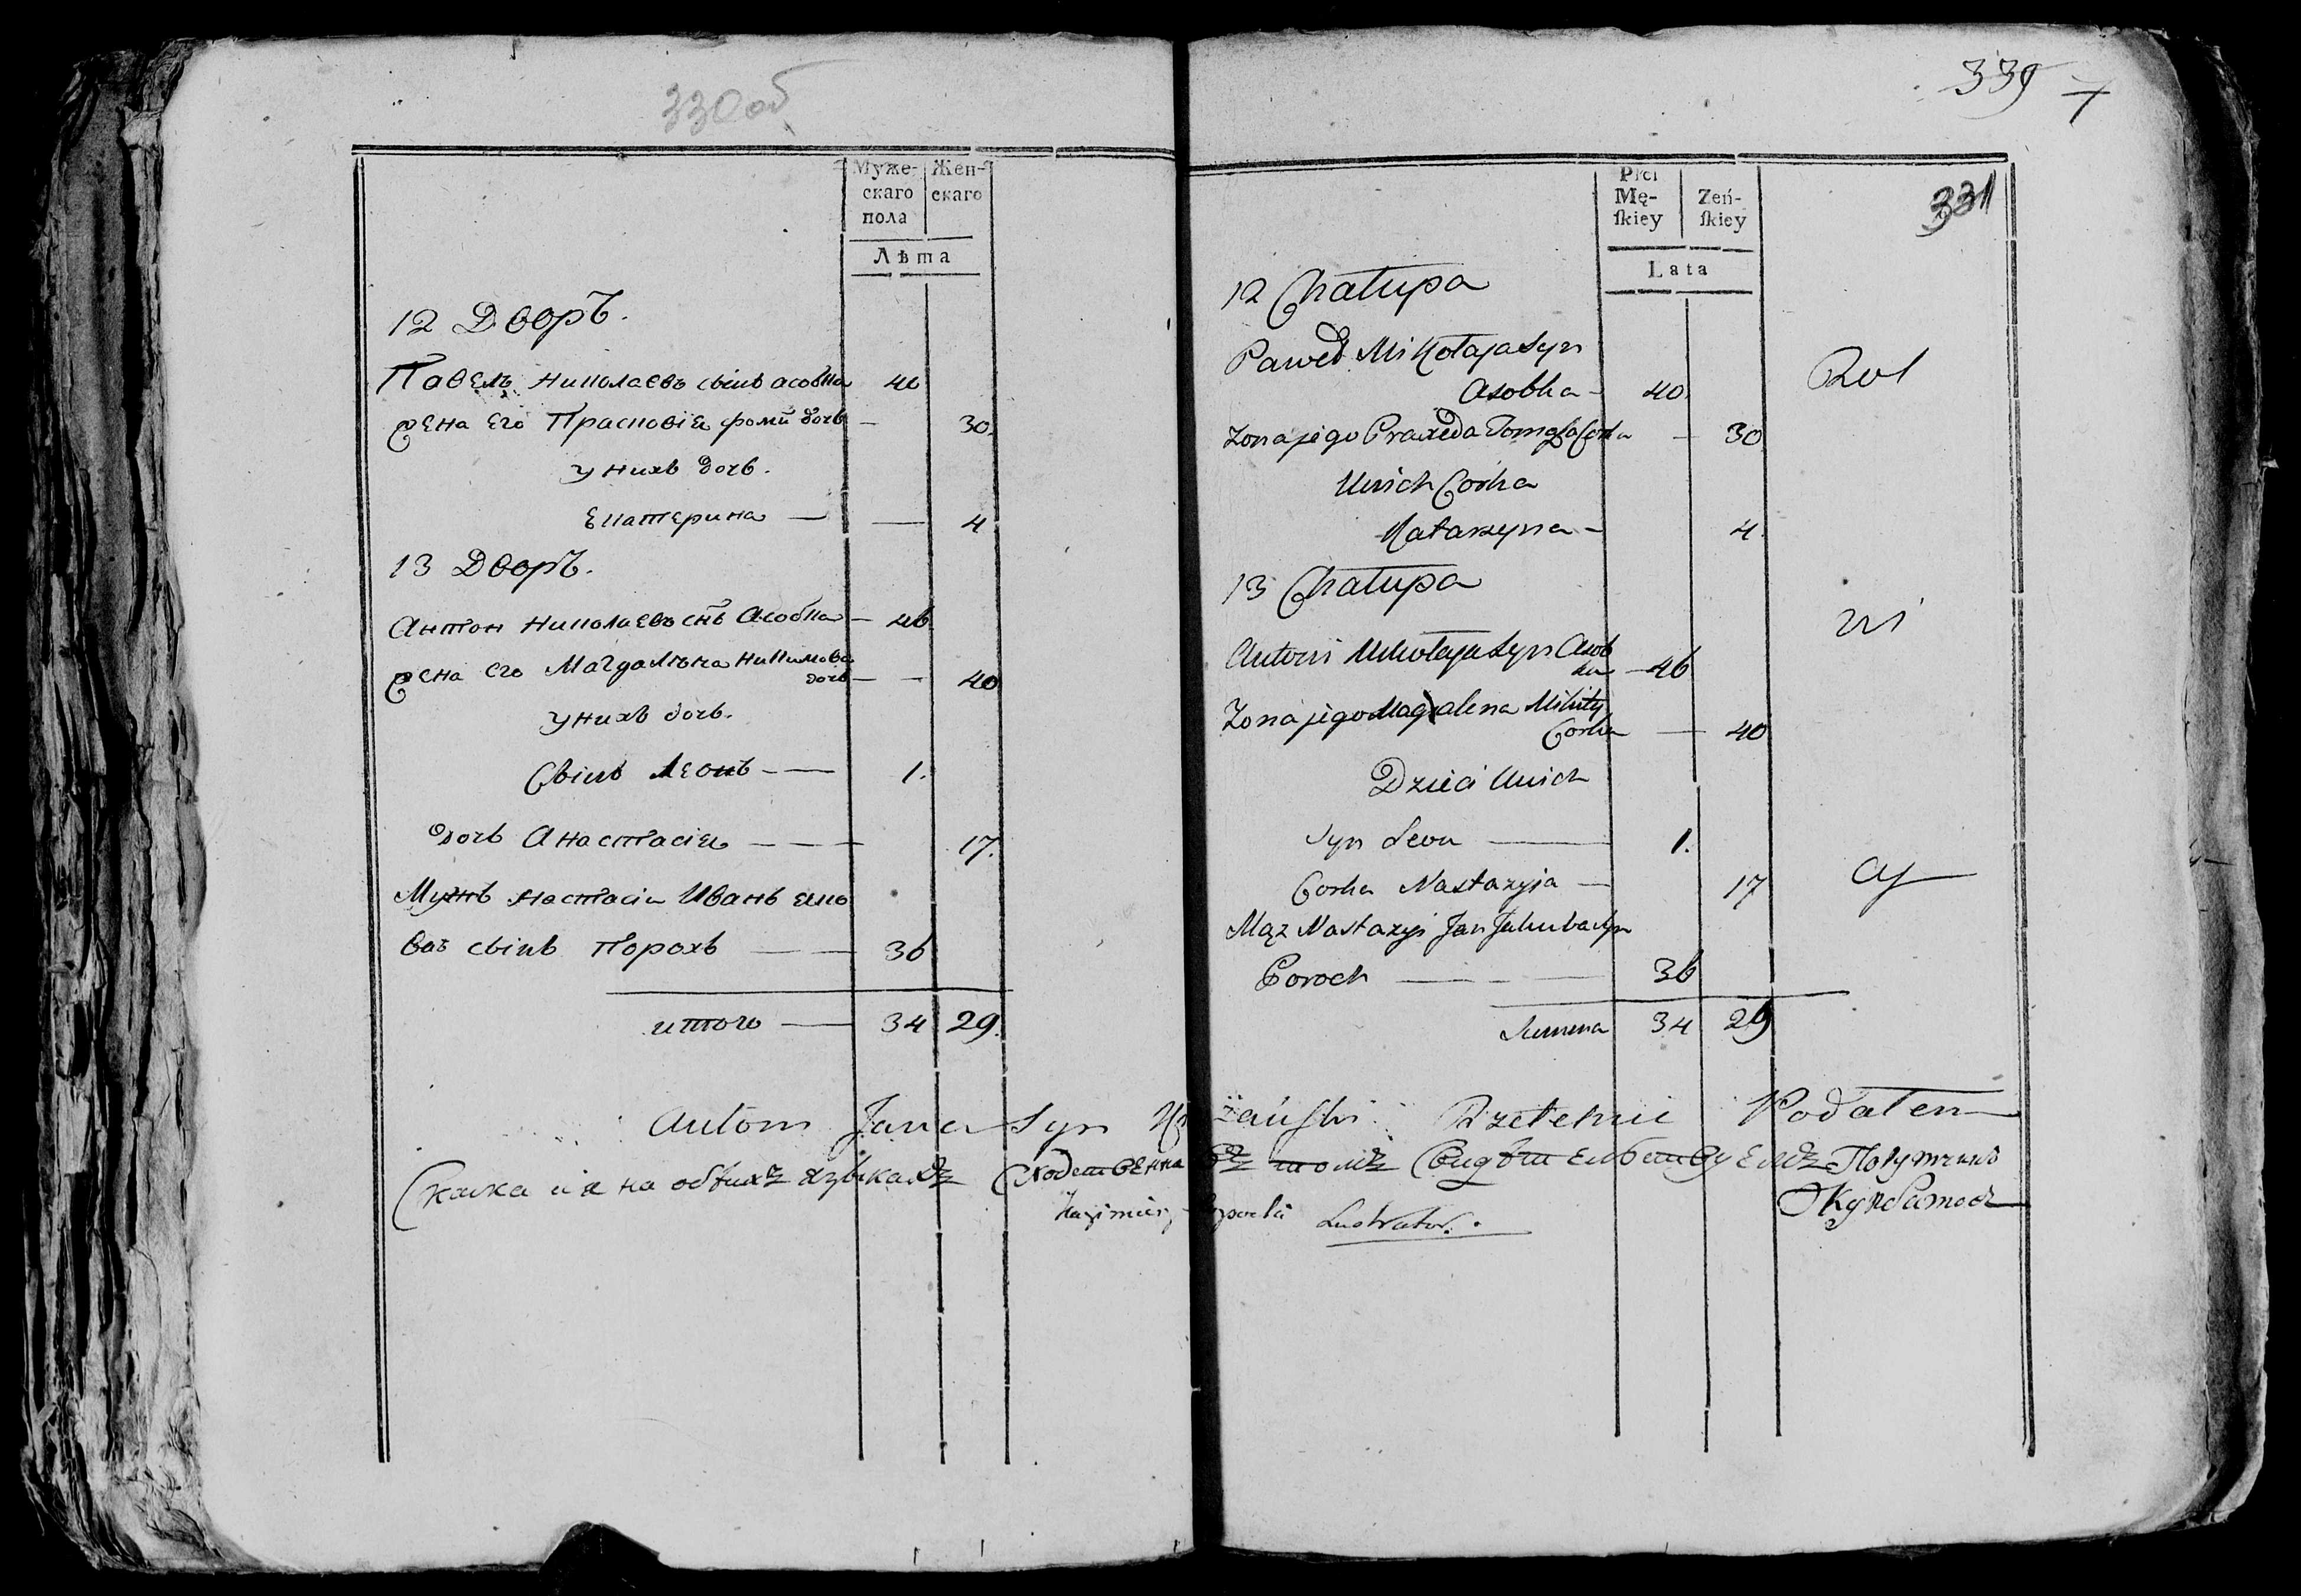 330об
Муже-
скаго
пола
Жен-
скаго
Лѣта
12 Дворъ.
Павелъ Николаевъ сынъ асобка 40
жена его Прасковiя фомы дочь — 30.
у нихъ дочь.
Екатерина — — 4
13 Дворъ.
Антон Николаевъ снъ Асобка — 46.
жена его Магдалѣна Никитова
дочь — — 40
у нихъ дочь.
Сынъ Леонъ — — 1.
дочь Анастасiя — — — 17.
Мужъ настасiи Иванъ яко
вав сынъ Порохъ — — 36
итого — 34 29.
339
331
Płci
Mę-
ſkiey
Zeń-
ſkiey
Lata
12 Chałupa
Paweł Mikołaja syn
Asobka - 40.
Zona jego Praxeda Tomasza Corka — 30
U nich Corka
Katarzyna - 4.
13 Chałupa
Antoni Mikołaja syn Asob
ka — 46
Zona jego Magdalena Mikity
Corka — 40
Dzieci U nich
syn Leon — 1.
Corka Nastazyia — 17
Mąz Nastazyi Jan Jakuba syn
Poroch — — — 36
Summa 34 29
Rol
ni
cy
Antoni Jana Syn żański Rzetelnie Podałem
Скаска сiя на обѣихъ языкахъ сходственна въ томъ свидѣтельствуемъ Порутчикъ
Kazimierz Lustrator.